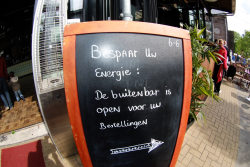 6-6
Bespaar Uw
Energie :
De buitenbar is
open voor uw
Bestellingen